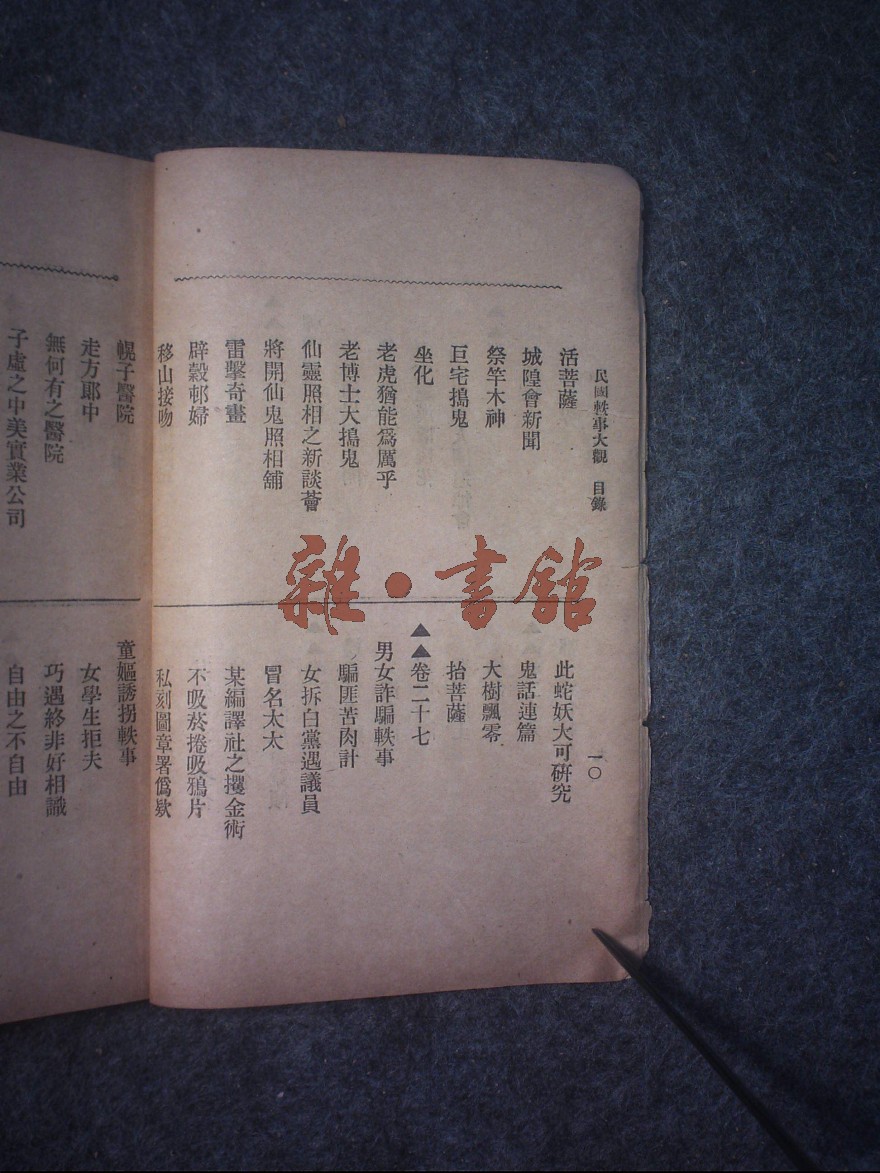 民國軼事大觀　目錄
一〇
活菩薩
城隍會新聞
祭竿木神
巨宅搗鬼
坐化
老虎猶能為厲乎
老博士大搗鬼
仙靈照相之新談薈
將開仙鬼照相舖
雷擊奇畫
辟穀邨婦
移山接吻
此蛇妖大可研究
鬼話連篇
大樹飄零
抬菩薩
▲▲卷二十七
男女詐騙軼事
騙匪苦肉計
女拆白黨遇議員
冒名太太
某編譯社之攫金術
不吸菸捲吸鴉片
私刻圖章署僞欵
幌子醫院
走方郎中
無何有之醫院
子虛之中美實業公司
童嫗誘拐軼事
女學生拒夫
巧遇終非好相識
自由之不自由
雜·書館